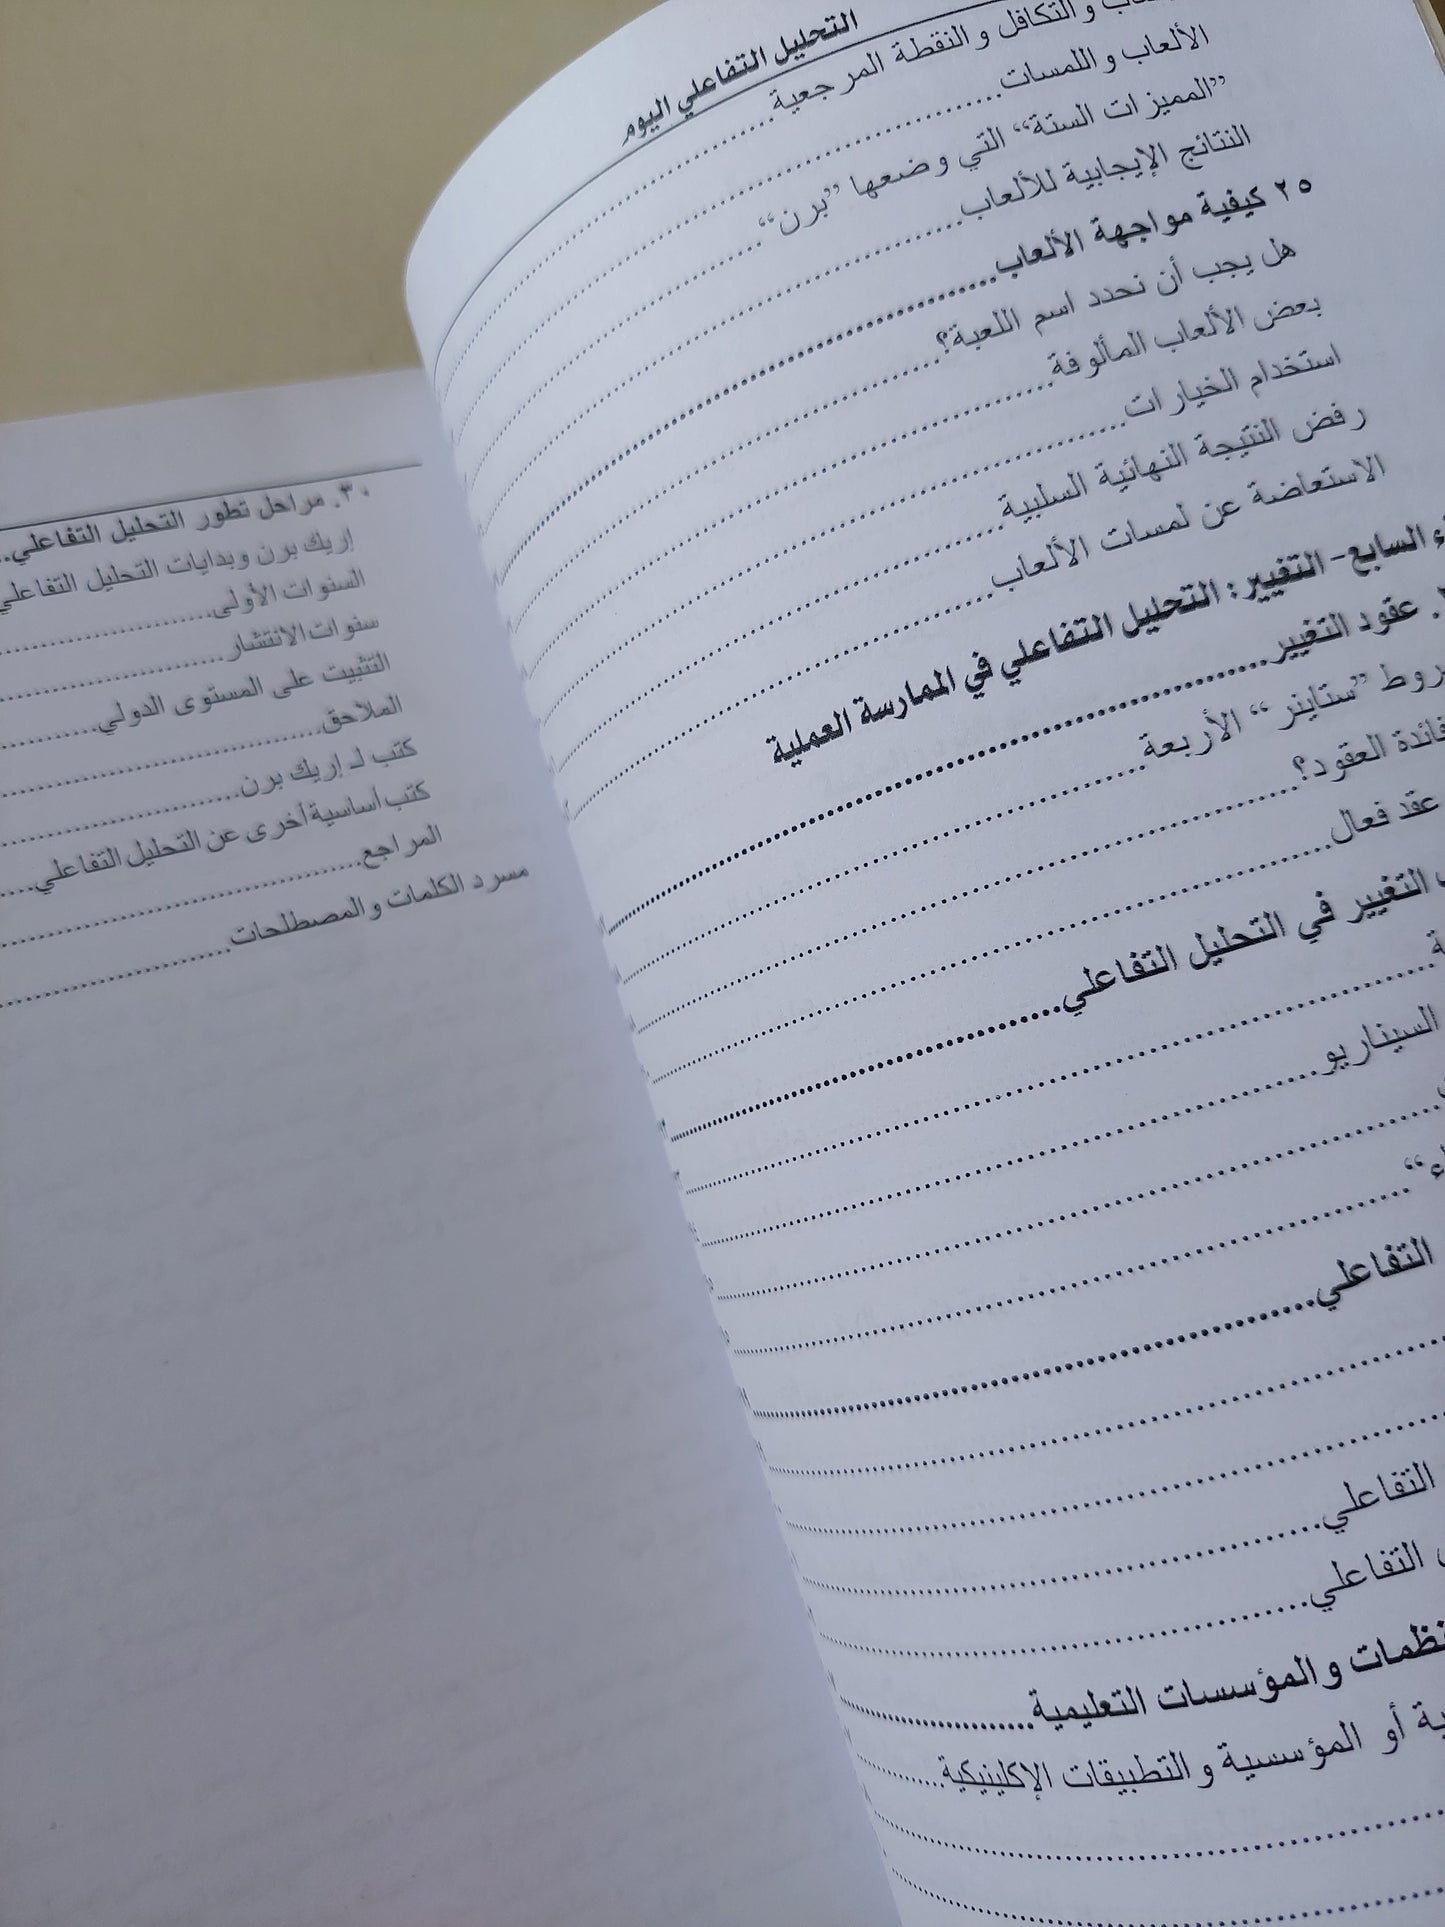 التحليل التفاعلي اليوم
و التكافل و النقطة المرجعية
الألعاب و اللمسات
”المميزات الستة“ التي وضعها ”برن“
النتائج الإيجابية للألعاب
٢٥ كيفية مواجهة الألعاب
هل يجب أن نحدد اسم اللعبة؟
بعض الألعاب المألوفة
استخدام الخيارات
رفض النتيجة النهائية السلبية
الاستعاضة عن لمسات الألعاب
السابع- التغيير: التحليل التفاعلي في الممارسة العملية
عقود التغيير
”ستاينر“ الأربعة
العقود؟
عقد فعال
التغيير في التحليل التفاعلي
السيناريو
التفاعلي
التفاعلي
التفاعلي
و المؤسسات التعليمية
أو المؤسسية و التطبيقات الإكلينيكية
٣٠. مراحل تطور التحليل التفاعلي
إريك برن وبدايات التحليل التفاعلي
السنوات الأولى
سنوات الانتشار
التثبيت على المستوى الدولي
الملاحق
كتب لـ إريك برن
كتب أساسية أخرى عن التحليل التفاعلي
المراجع
مسرد الكلمات و المصطلحات